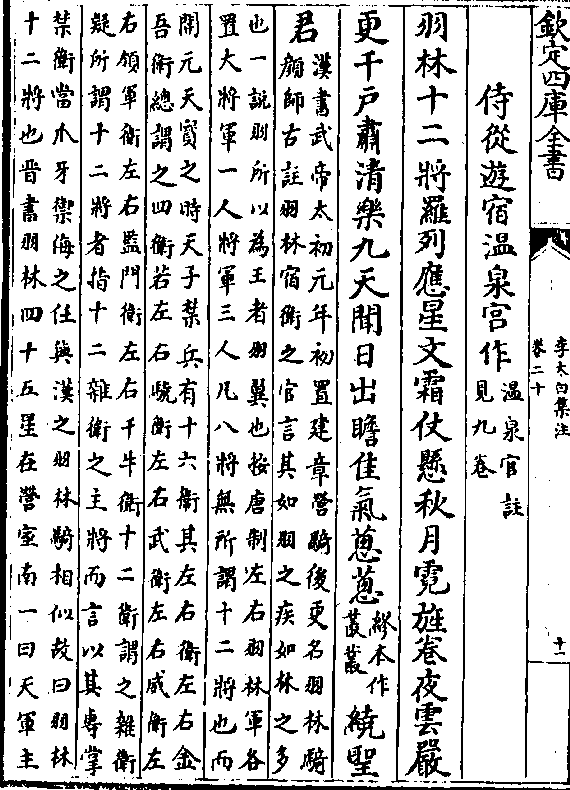 欽定四庫全書
李太白集注
卷二十
十一
侍從遊宿温泉宫作
温泉宫註
見九卷
羽林十二將羅列應星文霜仗懸秋月霓旌卷夜雲嚴
更千户肅清樂九天聞日出瞻佳氣蔥蔥
繆本作
叢叢
繞聖
君
漢書武帝太初元年初置建章營騎後更名羽林騎
顔師古註羽林宿衛之官言其如羽之疾如林之多
也一說羽所以為王者羽翼也按唐制左右羽林軍各
置大將軍一人將軍三人凡八將無所謂十二將也而
開元天寳之時天子禁兵有十六衛其左右衛左右金
吾衛總謂之四衛若左右驍衛左右武衛左右威衛左
右領軍衛左右監門衛左右千牛衛十二衛謂之雜衛
疑所謂十二將者指十二雜衛之主將而言以其專掌
禁衛當爪牙禦侮之任與漢之羽林騎相似故曰羽林
十二將也晋書羽林四十五星在營室南一曰天軍主